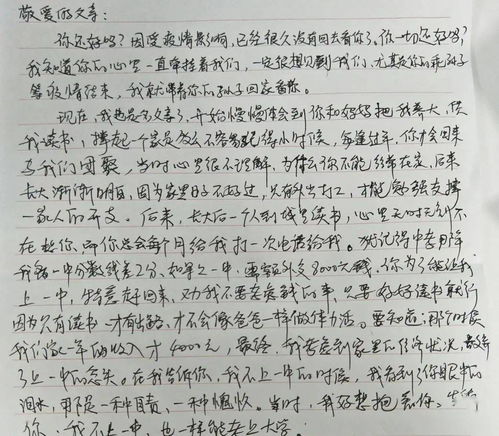 敬爱的父亲：
你还好吗？因受疫情影响，已经很久没有回去看你了。你一切还好吗？
我知道你的心里一直牵挂着我们，一定很想见到我们，尤其是你的乖孙子
等疫情结束，我就带着你的孙子回家看您。
现在，我也是为父亲了，开始慢慢体会到你和妈妈把我养大，供
我读书，撑起一个家是多么不容易。记得小时候，每逢过年，你才会回来
与我们团聚，当时心里很不理解，为什么你不能经常在家，后来
长大渐渐明白，因为家里日子不好过，只有外出打工，才能勉强支撑
一家人的开支。后来，长大后一个人到城里读书，心里无时无刻不
在想你，而你总会每个月给我打一次电话给我。犹记得中考那年
我离一中分数线差2分，如果上一中，需额外交8000元钱，你为了能让我
上一中，特意赶回来，对我说不要考虑钱的事，只要好好读书就行
因为只有读书才有出路，才不会像爸爸一样做体力活。要知道，那个时候
我们家一年的收入才4000元，最终，我考虑到家里的经济状况，放弃
了上一中的念头。在我告诉你，我不上一中的时候，我看到了你眼中的
泪水，那是一种自责，一种愧疚。当时，我好想抱着你，告诉
你，我不上一中，也一样能考上大学。